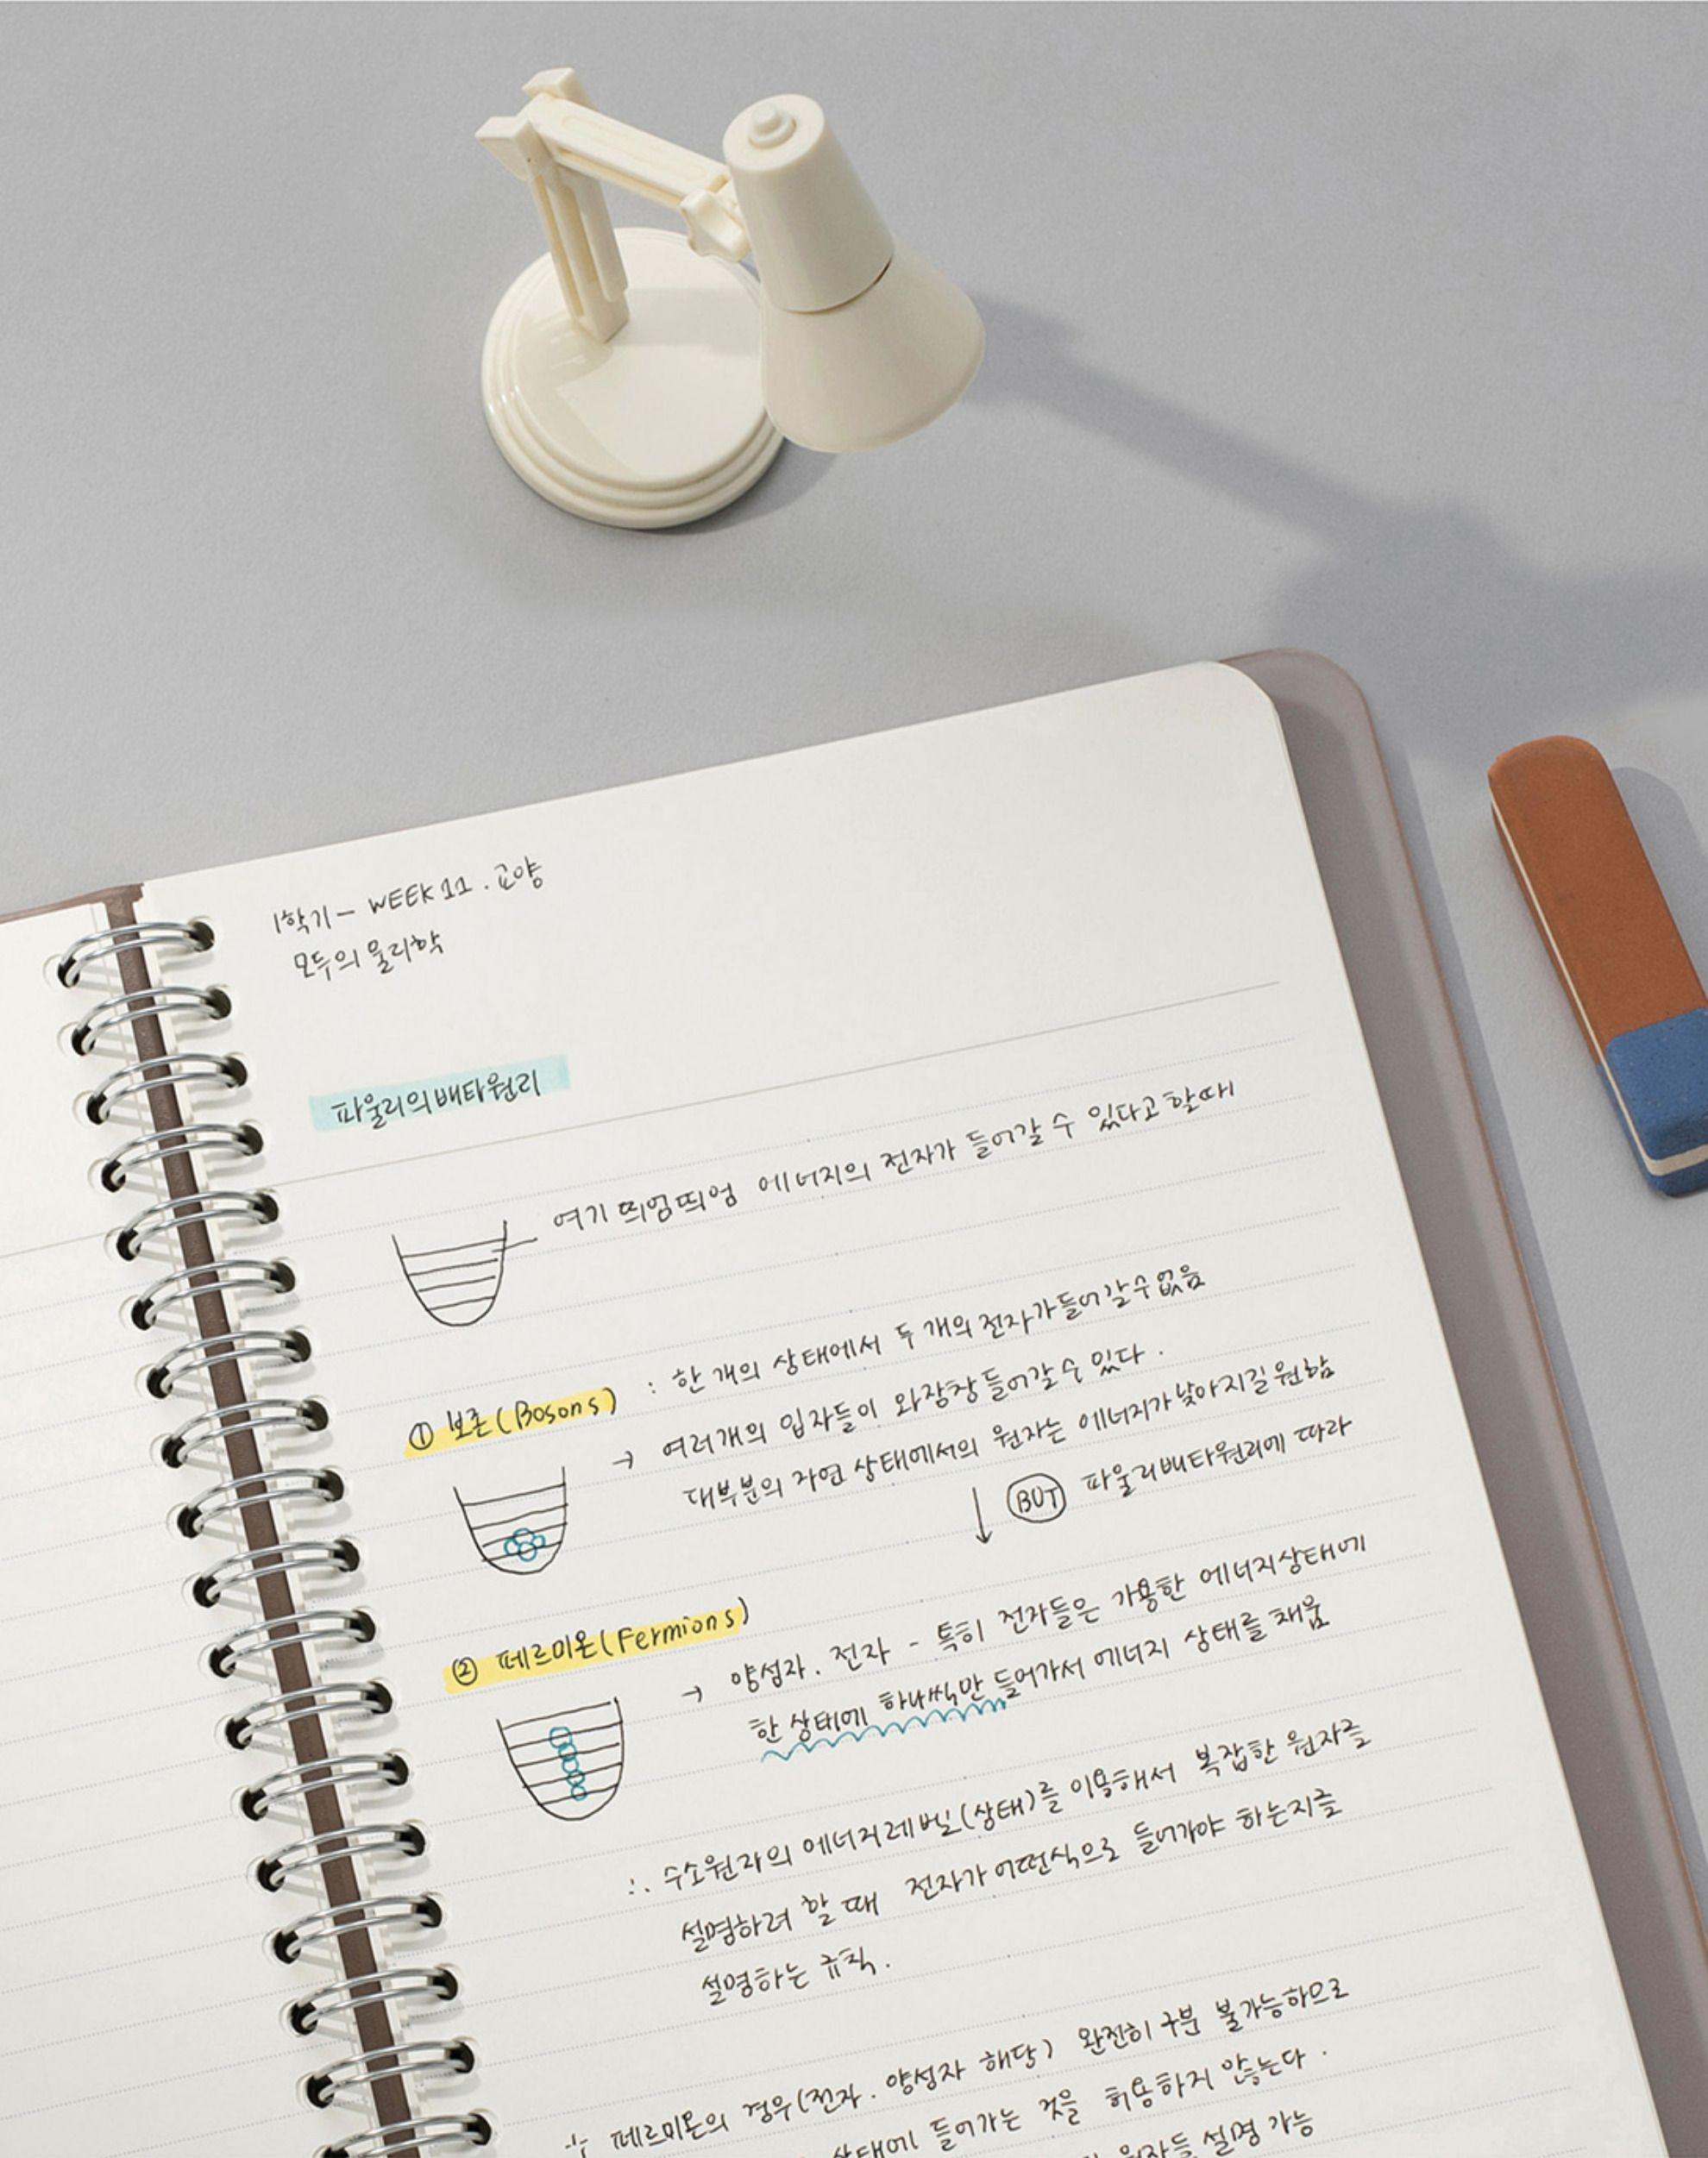 1학기 - WEEK 11 . 교양
모두의 물리학
파울리의 배타원리
여기 띄엄띄엄 에너지의 전자가 들어갈 수 있다고 할때
: 한 개의 상태에서 두 개의 전자가 들어갈 수 없음
① 보존 (Bosons)
→ 여러개의 입자들이 와장창 들어갈 수 있다.
대부분의 자연 상태에서의 원자는 에너지가 낮아지길 원함
↓ BUT 파울리배타원리에 따라
② 페르미온 (Fermions)
→ 양성자. 전자 - 특히 전자들은 가용한 에너지상태에
한 상태에 하나씩만 들어가서 에너지 상태를 채움
∴ 수소원자의 에너지레벨(상태)를 이용해서 복잡한 원자를
설명하려 할 때 전자가 어떤식으로 들어가야 하는지를
설명하는 규칙.
페르미온의 경우(전자. 양성자 해당) 완전히 구분 불가능하므로
상태에 들어가는 것을 허용하지 않는다.
원자들 설명 가능